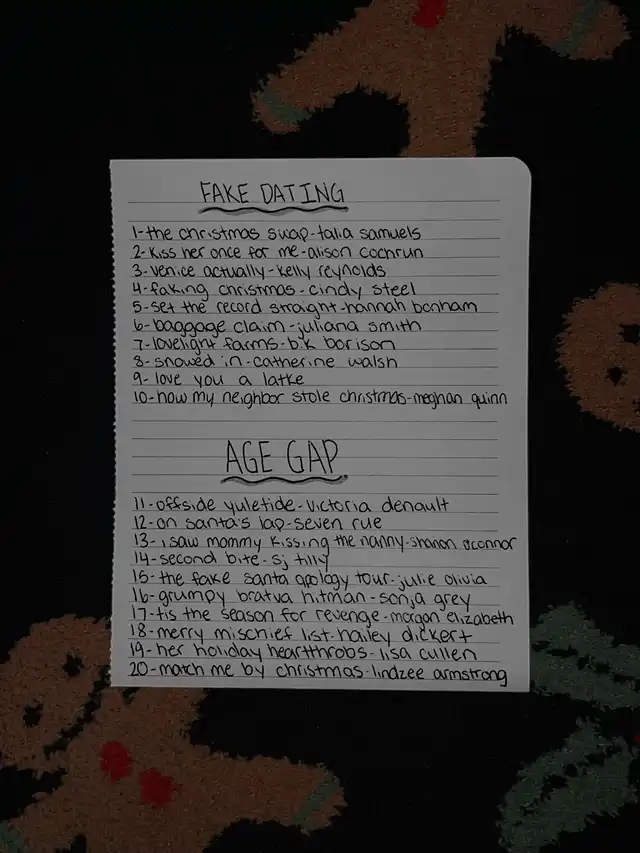 FAKE DATING
1-the christmas swap-talia samuels
2-kiss her once for me-alison cochrun
3-venice actually-kelly reynolds
4-faking christmas-cindy steel
5-set the record straight-hannah bonham
6-baggage claim-juliana smith
7-lovelight farms-b.k borison
8-snowed in-catherine walsh
9-love you a latke
10-how my neighbor stole christmas-meghan quinn
AGE GAP
11-offside yuletide-victoria denault
12-on santa's lap-seven rue
13-i saw mommy kissing the nanny-shanon o'connor
14-second bite-sj tilly
15-the fake santa apology tour-julie olivia
16-grumpy bratva hitman-sonja grey
17-tis the season for revenge-morgan elizabeth
18-merry mischief list-hailey dickert
19-her holiday heartthrobs-lisa cullen
20-match me by christmas-lindzee armstrong